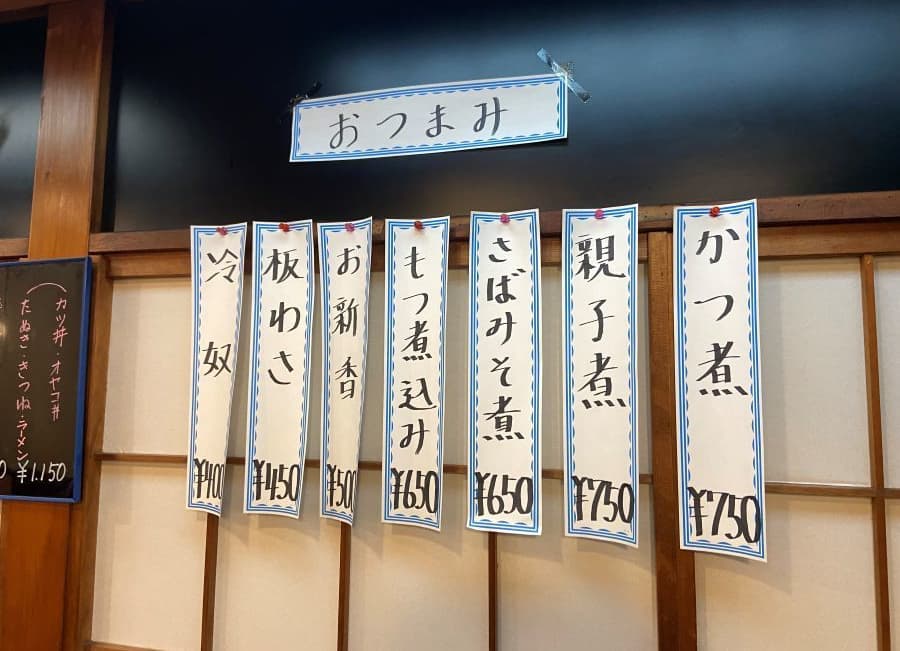 おつまみ
かつ煮
¥750
親子煮
¥750
さばみそ煮
¥650
もつ煮込み
¥650
お新香
¥500
板わさ
¥450
冷奴
¥400
(カツ丼・オヤコ丼
たぬき・きつね・ラーメン
¥1.150